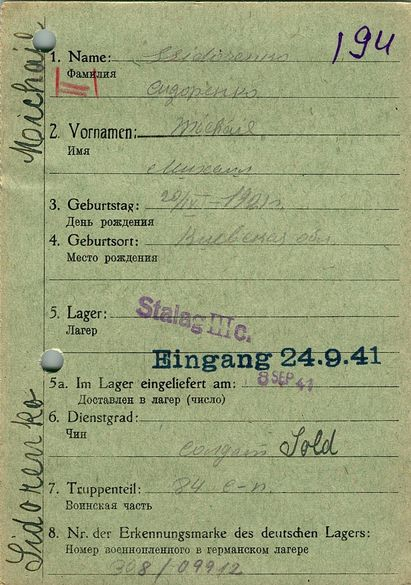 194
1. Name: Ssidorenko
Фамилия
III
Сидоренко
2. Vornamen: Michail
Имя
Михаил
3. Geburtstag: 20/IV-1921г.
День рождения
4. Geburtsort: Киевская обл
Место рождения
5. Lager: Stalag III c.
Лагер
Eingang 24.9.41
5a. Im Lager eingeliefert am: 8 SEP 41
Доставлен в лагер (число)
6. Dienstgrad:
Чин
солдат Sold
7. Truppenteil: 84 с-п.
Воинская часть
8. Nr. der Erkennungsmarke des deutschen Lagers:
Номер военнопленного в германском лагере
308/09912
Sidorenko Michail